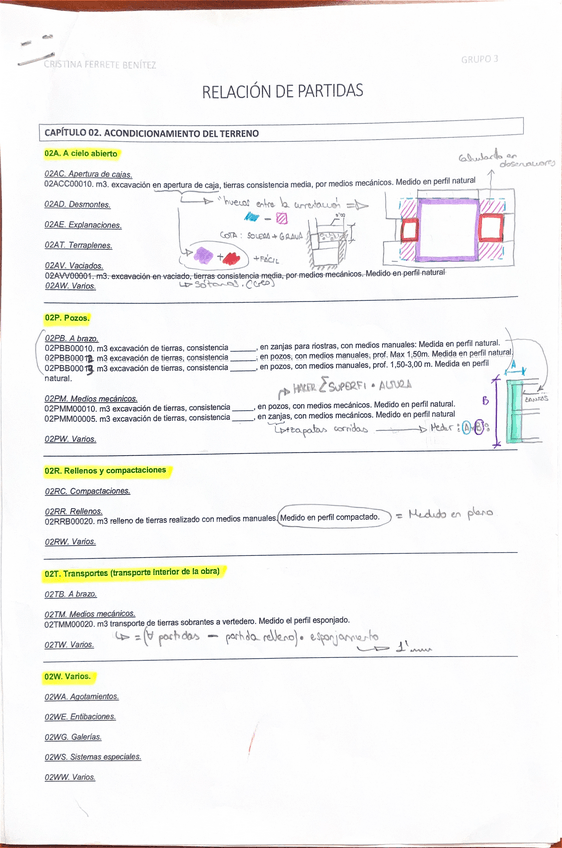 CRISTINA FERRETE BENÍTEZ
GRUPO 3
RELACIÓN DE PARTIDAS
CAPÍTULO 02. ACONDICIONAMIENTO DEL TERRENO
02A. A cielo abierto
Calculando en
observaciones
02AC. Apertura de cajas.
02ACC00010. m3. excavación en apertura de caja, tierras consistencia media, por medios mecánicos. Medido en perfil natural
"huecos" entre la cimentación
02AD. Desmontes.
02AE. Explanaciones.
COTA: SOLERA + GRAVA
02AT. Terraplenes.
+ + FÁCIL
02AV. Vaciados.
02AVV00001. m3. excavación en vaciado, tierras consistencia media, por medios mecánicos. Medido en perfil natural
02AW. Varios.
sótanos.
02P. Pozos.
02PB. A brazo.
02PBB00010. m3 excavación de tierras, consistencia ______, en zanjas para riostras, con medios manuales: Medida en perfil natural.
02PBB00012. m3 excavación de tierras, consistencia ______, en pozos, con medios manuales, prof. Max 1,50m. Medida en perfil natural
02PBB00013. m3 excavación de tierras, consistencia ______, en pozos, con medios manuales, prof. 1,50-3,00 m. Medida en perfil
natural.
A
HACER Σ SUPERFI • ALTURA
B
02PM. Medios mecánicos.
02PMM00010. m3 excavación de tierras, consistencia ______, en pozos, con medios mecánicos. Medido en perfil natural.
02PMM00005. m3 excavación de tierras, consistencia ______, en zanjas, con medios mecánicos. Medido en perfil natural
zapatas corridas Medir: A B
02PW. Varios.
02R. Rellenos y compactaciones
02RC. Compactaciones.
02RR. Rellenos.
02RRB00020. m3 relleno de tierras realizado con medios manuales. Medido en perfil compactado. = Medido en plano
02RW. Varios.
02T. Transportes (transporte interior de la obra)
02TB. A brazo.
02TM. Medios mecánicos.
02TMM00020. m3 transporte de tierras sobrantes a vertedero. Medido el perfil esponjado.
= (∀ partidas − partida relleno) • esponjamiento
02TW. Varios.
1'
02W. Varios.
02WA. Agotamientos.
02WE. Entibaciones.
02WG. Galerías.
02WS. Sistemas especiales.
02WW. Varios.